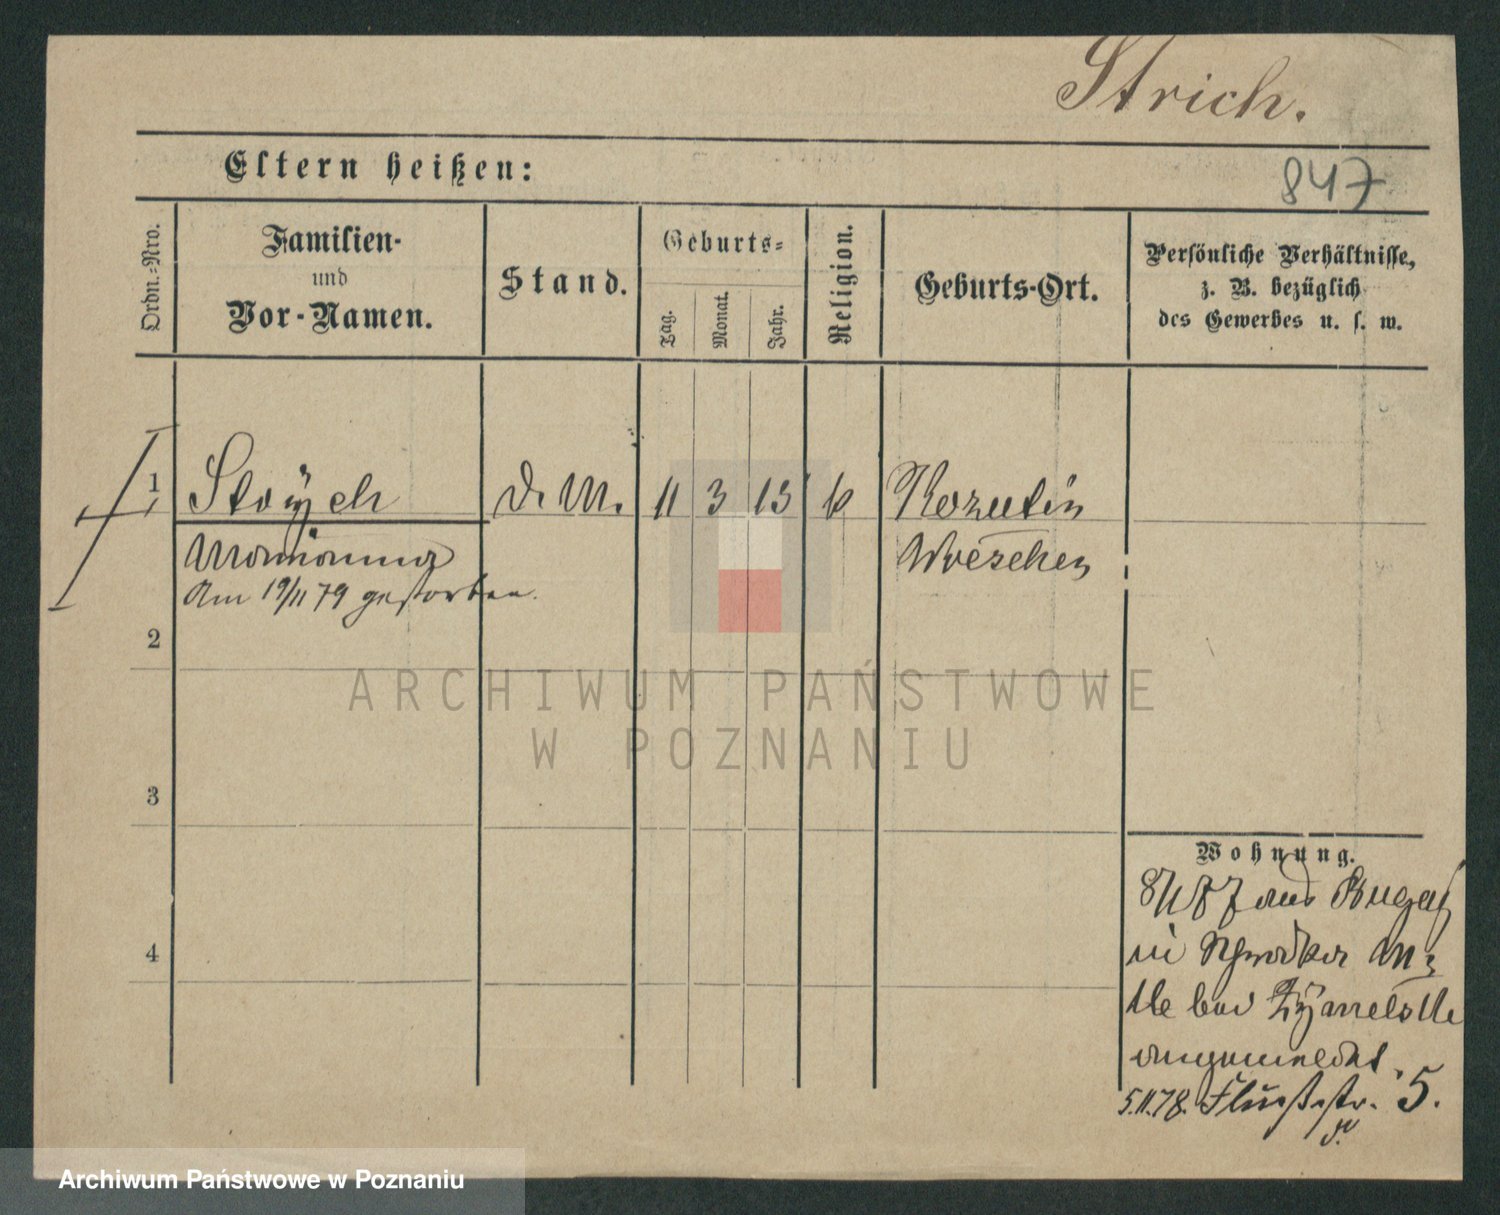 Strich.
Eltern heißen:
847
Ordn.-Nro.
Familien-
und
Vor-Namen.
Stand.
Geburts-
Tag.
Monat.
Jahr.
Religion.
Geburts-Ort.
Persönliche Verhältnisse,
z. B. bezüglich
des Gewerbes u. s. w.
1 Stoÿch d. M. 11 3 13 k Kozutin
Marianna Wreschen
Am 19/11 79 gestorben.
2
ARCHIWUM PAŃSTWOWE
W POZNANIU
3
Wohnung.
aus
4
in
bei
angemeldet.
5.11.78. Flußstr. 5.
Archiwum Państwowe w Poznaniu